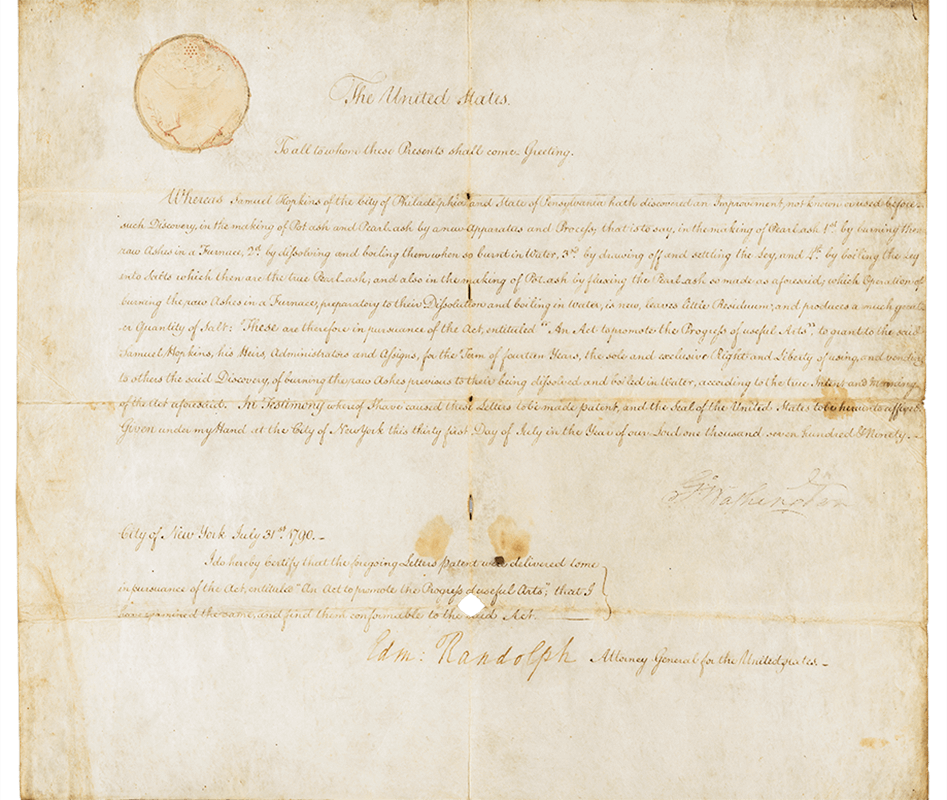 The United States.
To all to whom these Presents shall come Greeting.
Whereas Samuel Hopkins of the City of Philadelphia and State of Pensylvania hath discovered an Improvement, not known or used before
such Discovery, in the making of Pot ash and Pearl ash by a new Apparatus and Process; that is to say, in the making of Pearl ash 1st by burning the
raw Ashes in a Furnace, 2d by dissolving and boiling them when so burnt in Water, 3rd by drawing off and settling the Ley, and 4th by boiling the Ley
into Salts which then are the true Pearl ash; and also in the making of Pot ash by fluxing the Pearl ash so made as aforesaid; which Operation of
burning the raw Ashes in a Furnace, preparatory to their Dissolution and boiling in Water, is new, leaves little Residuum; and produces a much great-
er Quantity of Salt: These are therefore in pursuance of the Act, entituled "An Act to promote the Progress of useful Arts", to grant to the said
Samuel Hopkins, his Heirs, Administrators and Assigns, for the Term of fourteen Years, the sole and exclusive Right and Liberty of using, and vending
to others the said Discovery, of burning the raw Ashes previous to their being dissolved and boiled in Water, according to the true Intent and Meaning
of the Act aforesaid. In Testimony whereof I have caused these Letters to be made patent, and the Seal of the United States to be hereunto affixed
Given under my Hand at the City of New York this thirty first Day of July in the Year of our Lord one thousand seven hundred & Ninety.
G. Washington
City of New York July 31st 1790. -
I do hereby Certify that the foregoing Letters patent were delivered to me
in pursuance of the Act, entituled "An Act to promote the Progress of useful Arts"; that I
have examined the same, and find them conformable to the said Act.
Edm: Randolph Attorney General for the United States. -